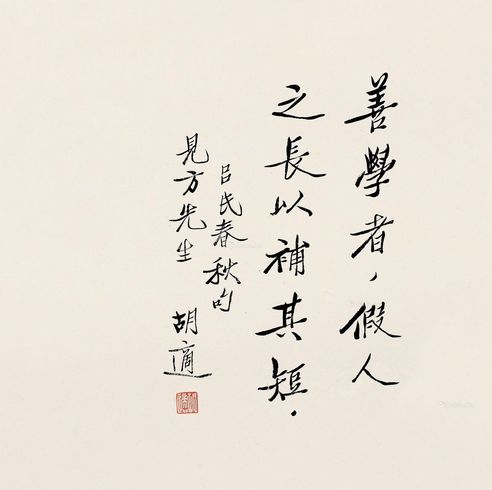 善學者，假人
之長以補其短．
呂氏春秋句
見方先生
胡適